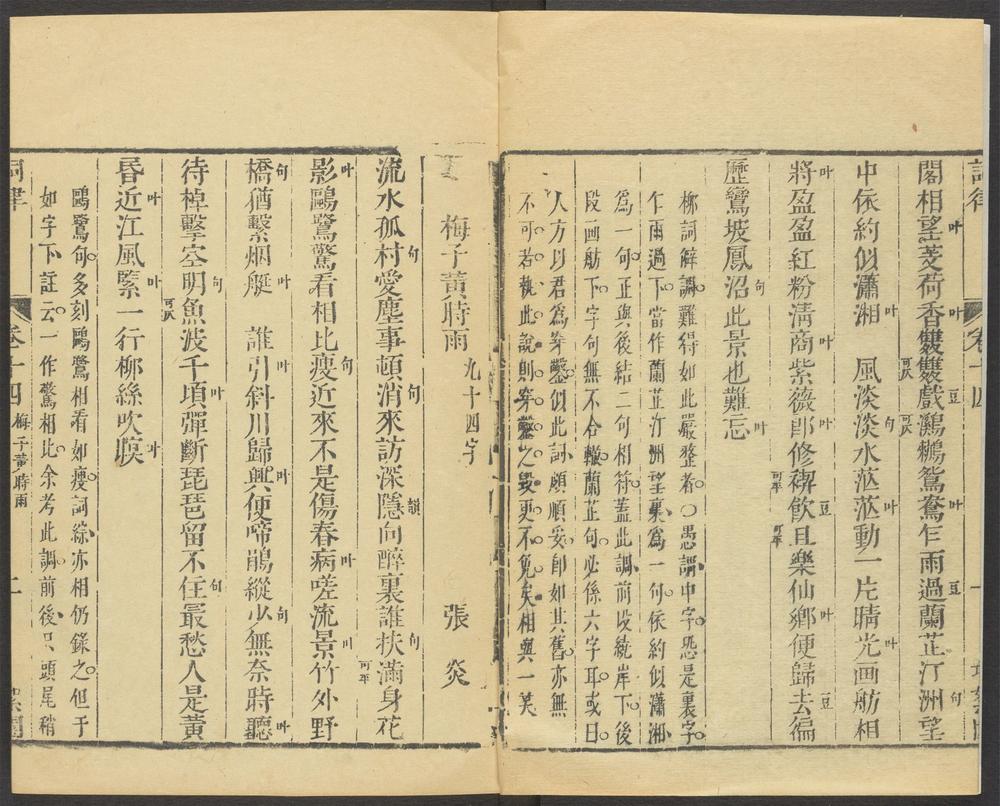 閣相望菱荷香雙雙戲鸂鶒鴛鴦乍雨過蘭芷汀洲望
中依約似瀟湘　風淡淡水茫茫動一片晴光画舫相
將盈盈紅粉清商紫薇郎修禊飲且樂仙鄉便歸去徧
歷鸞坡鳳沼此景也難忘
柳詞觧調難得如此嚴整者○愚謂中字恐是裏字
乍雨過下當作蘭芷汀洲望裏爲一句依約似瀟湘
爲一句正與後結二句相符葢此調前岐繞岸下後
段画舫下字句無不合轍蘭芷句必係六字耳或曰
人方以君爲穿鑿似此詞頗順妥即如其舊亦無
不可若執此說則穿鑿之毀更不免矣相與一笑
梅子黃時雨　九十四字　張炎
流水孤村愛塵事頓消來訪深隱向醉裏誰扶滿身花
影鷗鷺驚看相比瘦近來不是傷春病嗟流景竹外野
橋猶繫烟艇　誰引斜川歸興便啼鵑縱少無奈時聽
待棹擊空明魚波千頃彈斷琵琶留不住最愁人是黃
昏近江風緊一行柳絲吹暝
鷗鷺句多刻鷗鷺相看如瘦詞綜亦相仍錄之但于
如字下註云一作驚相比余考此調前後只頭尾稍
詞律　卷十四　梅子黃時雨　二